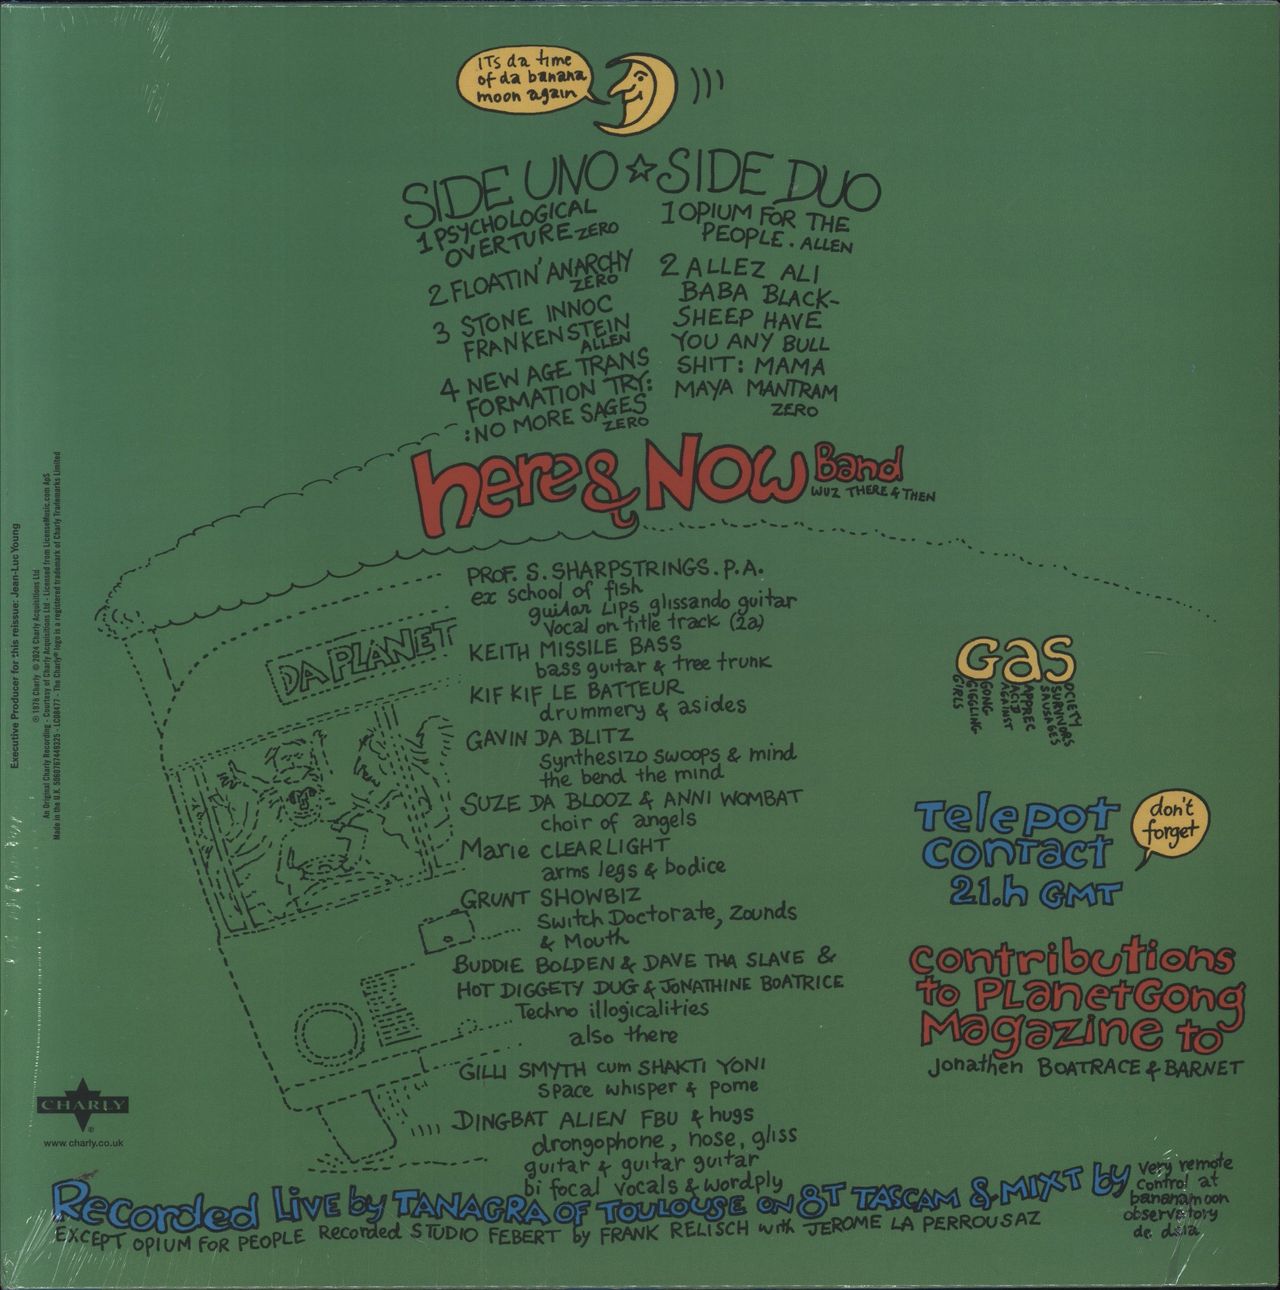 ITs da time
of da banana
moon again
SIDE UNO ☆ SIDE DUO
1 PSYCHOLOGICAL
OVERTURE ZERO
2 FLOATIN' ANARCHY
ZERO
3 STONE INNOC
FRANKENSTEIN
ALLEN
4 NEW AGE TRANS
FORMATION TRY:
:NO MORE SAGES
ZERO
1 OPIUM FOR THE
PEOPLE. ALLEN
2 ALLEZ ALI
BABA BLACK-
SHEEP HAVE
YOU ANY BULL
SHIT: MAMA
MAYA MANTRAM
ZERO
here & NOW Band
WUZ THERE & THEN
DA PLANET
PROF. S. SHARPSTRINGS. P.A.
ex school of fish
guitar LIPS glissando guitar
Vocal on title track (2a)
KEITH MISSILE BASS
bass guitar & tree trunk
KIF KIF LE BATTEUR
drummery & asides
GAVIN DA BLITZ
Synthesizo swoops & mind
the bend the mind
SUZE DA BLOOZ & ANNI WOMBAT
choir of angels
Marie CLEARLIGHT
arms legs & bodice
GRUNT SHOWBIZ
Switch Doctorate, Zounds
& Mouth
BUDDIE BOLDEN & DAVE THA SLAVE &
HOT DIGGETY DUG & JONATHINE BOATRICE
Techno illogicalities
also there
GILLI SMYTH cum SHAKTI YONI
Space whisper & pome
DINGBAT ALIEN FBU & hugs
drongophone, nose, gliss
guitar & guitar guitar
bi focal vocals & wordply
Gas
GONG
GIGGLING
GIRLS
APPREC
ACID
AGAINST
OCIETY
SURVIVORS
SAUSAGES
Telepot
Contact
21.h GMT
don't
forget
Contributions
to PLanetGong
Magazine to
Jonathen BOATRACE & BARNET
Recorded Live by TANAGRA OF TOULOUSE ON 8T TASCAM & MIXT by
very remote
control at
bananamoon
observatory
de deia
EXCEPT OPIUM FOR PEOPLE Recorded STUDIO FEBERT by FRANK RELISCH with JEROME LA PERROUSAZ
Executive Producer for this reissue: Jean-Luc Young
℗ 1978 Charly © 2024 Charly Acquisitions Ltd
An Original Charly Recording - Courtesy of Charly Acquisitions Ltd - Licensed from LicenseMusic.com ApS
Made in the U.K. 5060767449325 - LC08477 - The Charly® logo is a registered trademark of Charly Trademarks Limited
CHARLY
®
www.charly.co.uk